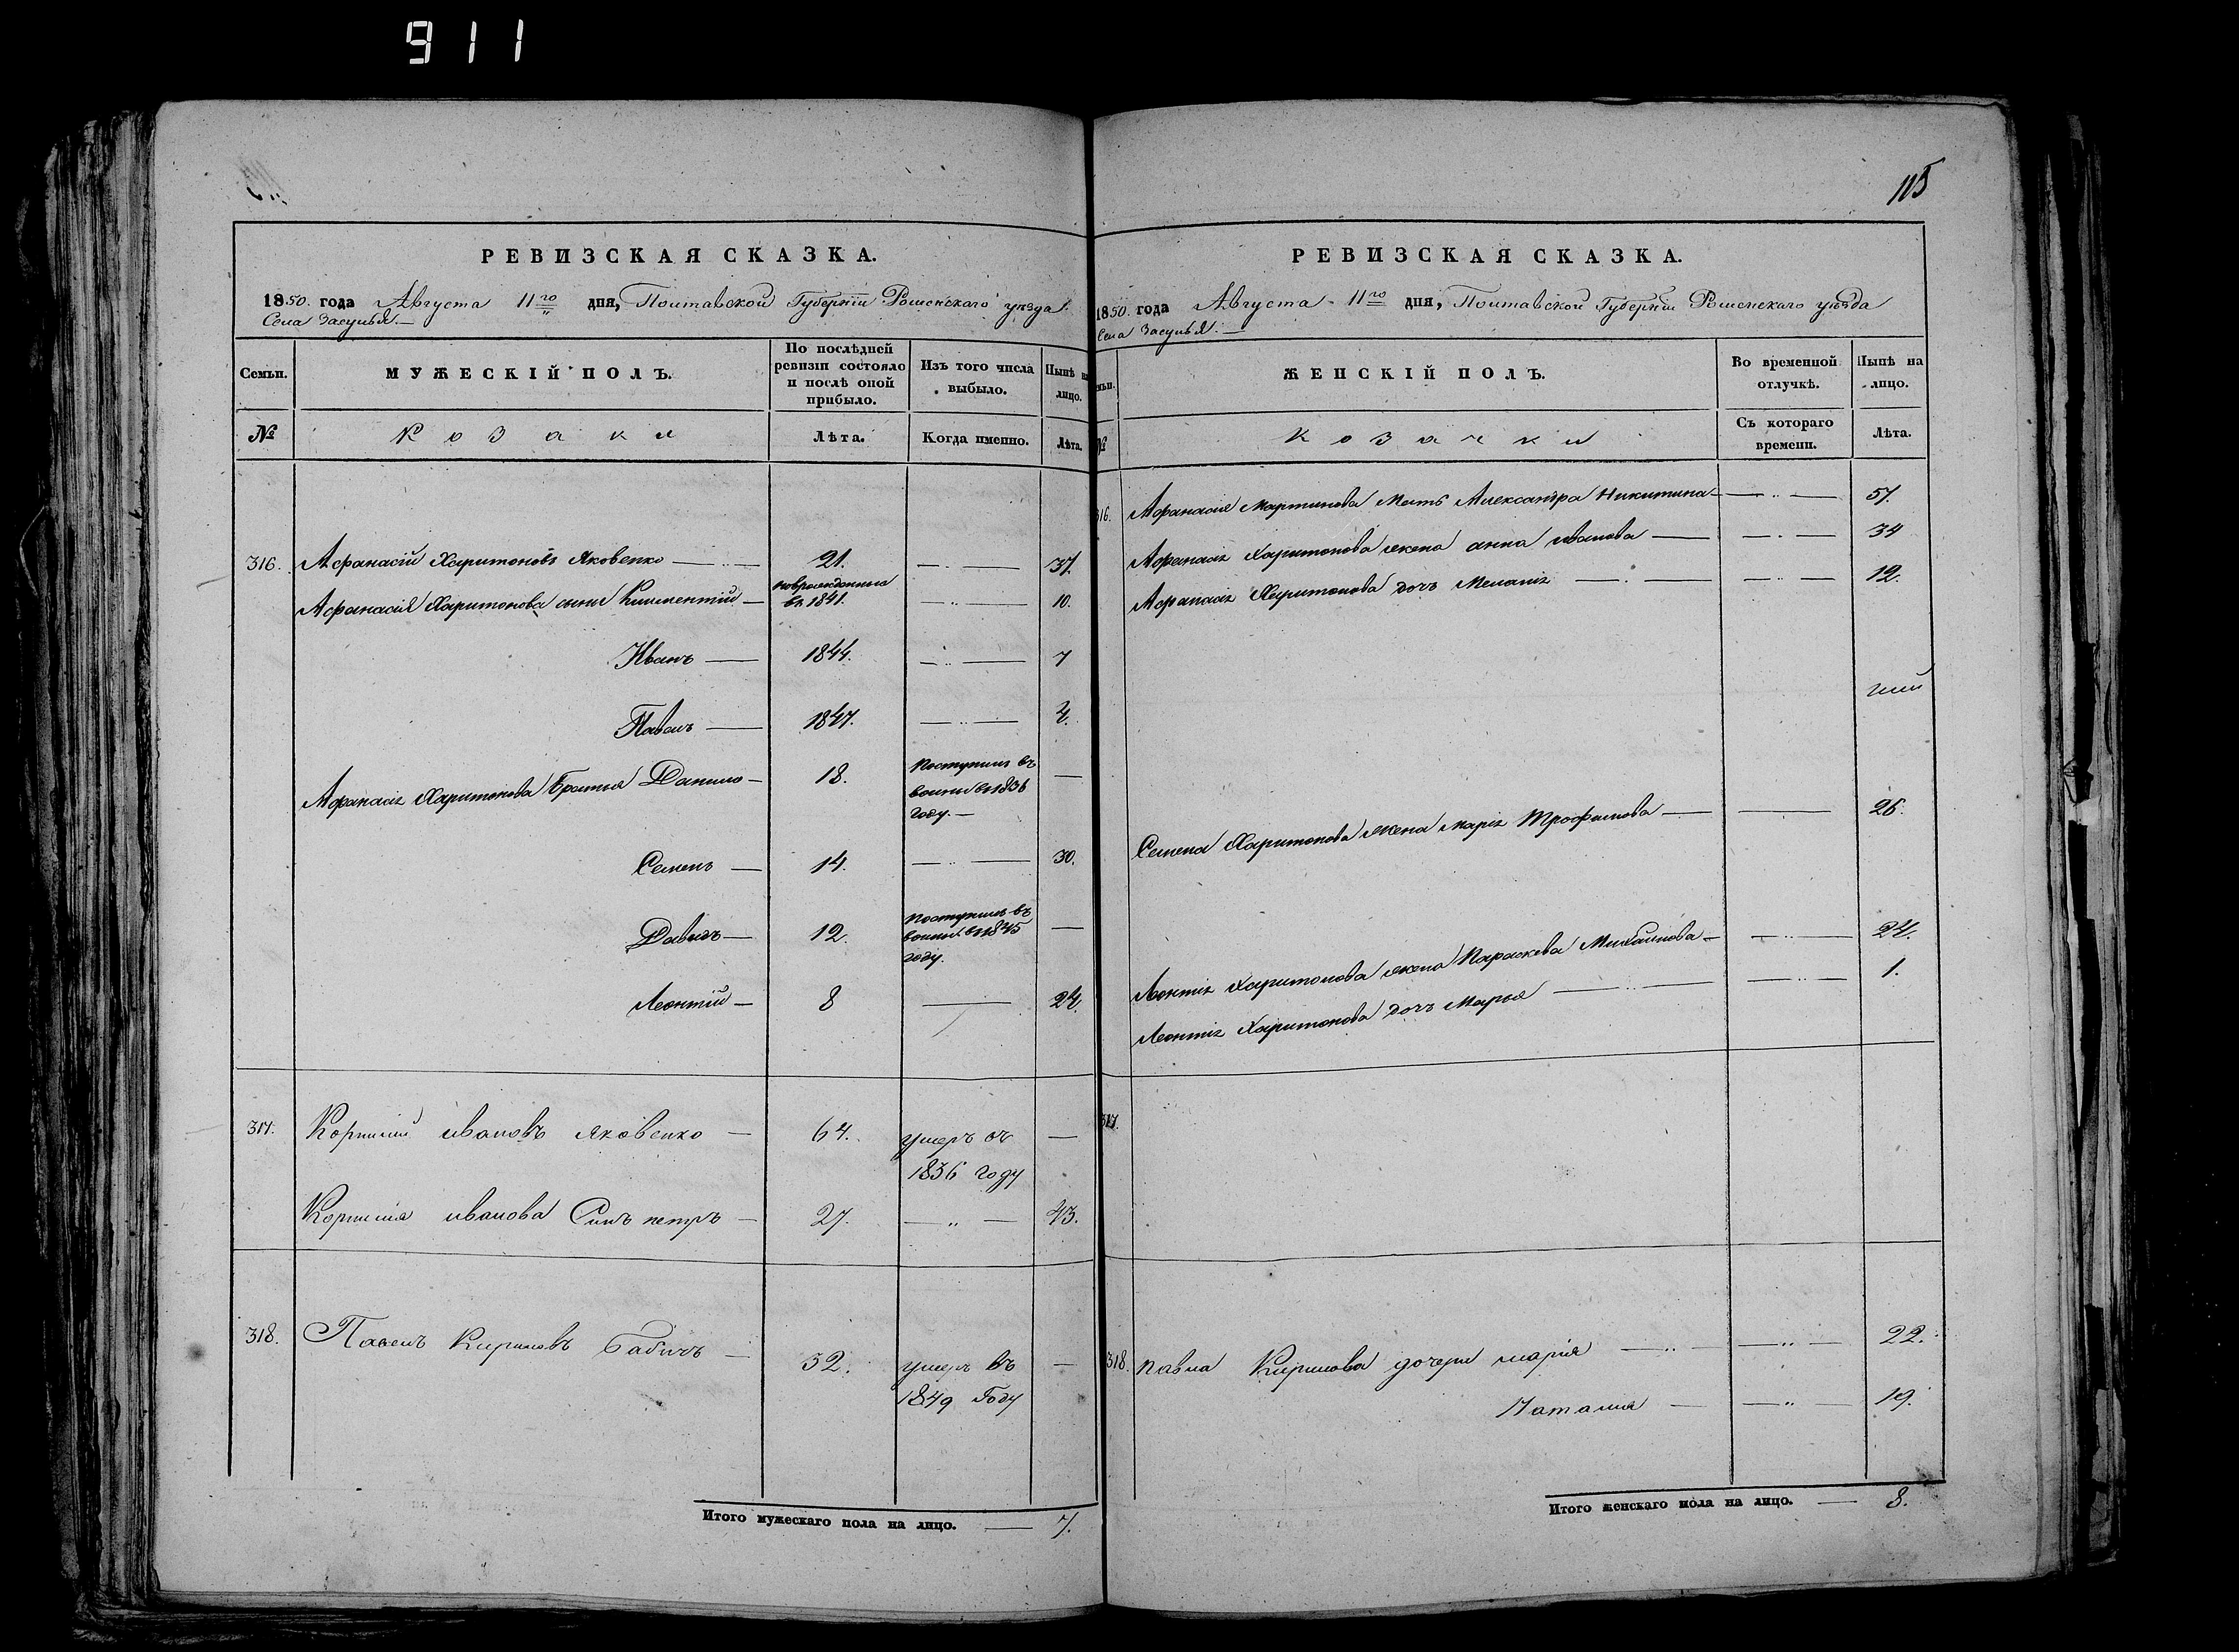 911
115
РЕВИЗСКАЯ СКАЗКА.
1850. года Августа 11го дня, Полтавской Губерніи Роменского уезда.
Села Засулья.
Семьи. МУЖЕСКІЙ ПОЛЪ. По послѣдней ревизіи состояло и послѣ оной прибыло. Изъ того числа выбыло. Нынѣ на лицо.
№ Козаки Лѣта. Когда именно. Лѣта.
316. Афанасій Харитоновъ Яковенко — 21. — 37.
новрожденные
Афанасія Харитонова сыны Климентій — въ 1841. — 10.
Иванъ — 1844. — 7
Павелъ — 1847. — 4.
Афанасія Харитонова Братья Данило — 18. Поступилъ въ —
1836
году. —
Семенъ — 14. — 30.
Давидъ — 12. Поступилъ въ —
1845
году.
Леонтій — 8 — 24.
317. Корнилій ивановъ яковенко — 64. умеръ въ —
1836 году
Корнилія иванова Синъ петръ — 27. — 43.
318. Павелъ Кириловъ Бабичъ — 52. умеръ въ —
1849 Году
Итого мужескаго пола на лицо. — 7.
РЕВИЗСКАЯ СКАЗКА.
1850. года Августа 11го дня, Полтавской Губерніи Роменскаго уѣзда
Села Засулья. —
ЖЕНСКІЙ ПОЛЪ. Во временной отлучкѣ. Нынѣ на лицо.
№ Козачки Съ котораго времени. Лѣта.
316. Афанасія Мать Александра Никитина — 57.
Афанасія Харитонова жена анна иванова — 34
Афанасія Харитонова дочь Меланія — 12.
Семена Харитонова жена марія Трофимова — 26.
Леонтія Харитонова жена Параскева Михайлова — 24.
Леонтія Харитонова дочь Марья — 1.
317.
318. павла Кирилова дочери марія — 22.
Наталия — 19.
Итого женскаго пола на лицо. — 8.